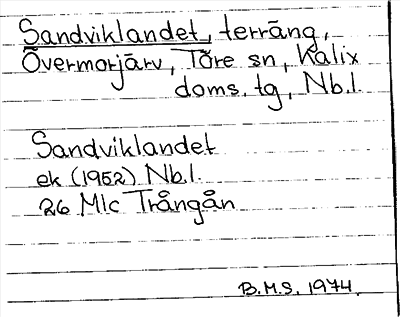 Sandviklandet, terräng,
Övermorjärv, Töre sn, Kalix
doms. tg, Nb.l.
Sandviklandet
ek (1952) Nb.l.
26 Mlc Trångån
B.M.S. 1974.